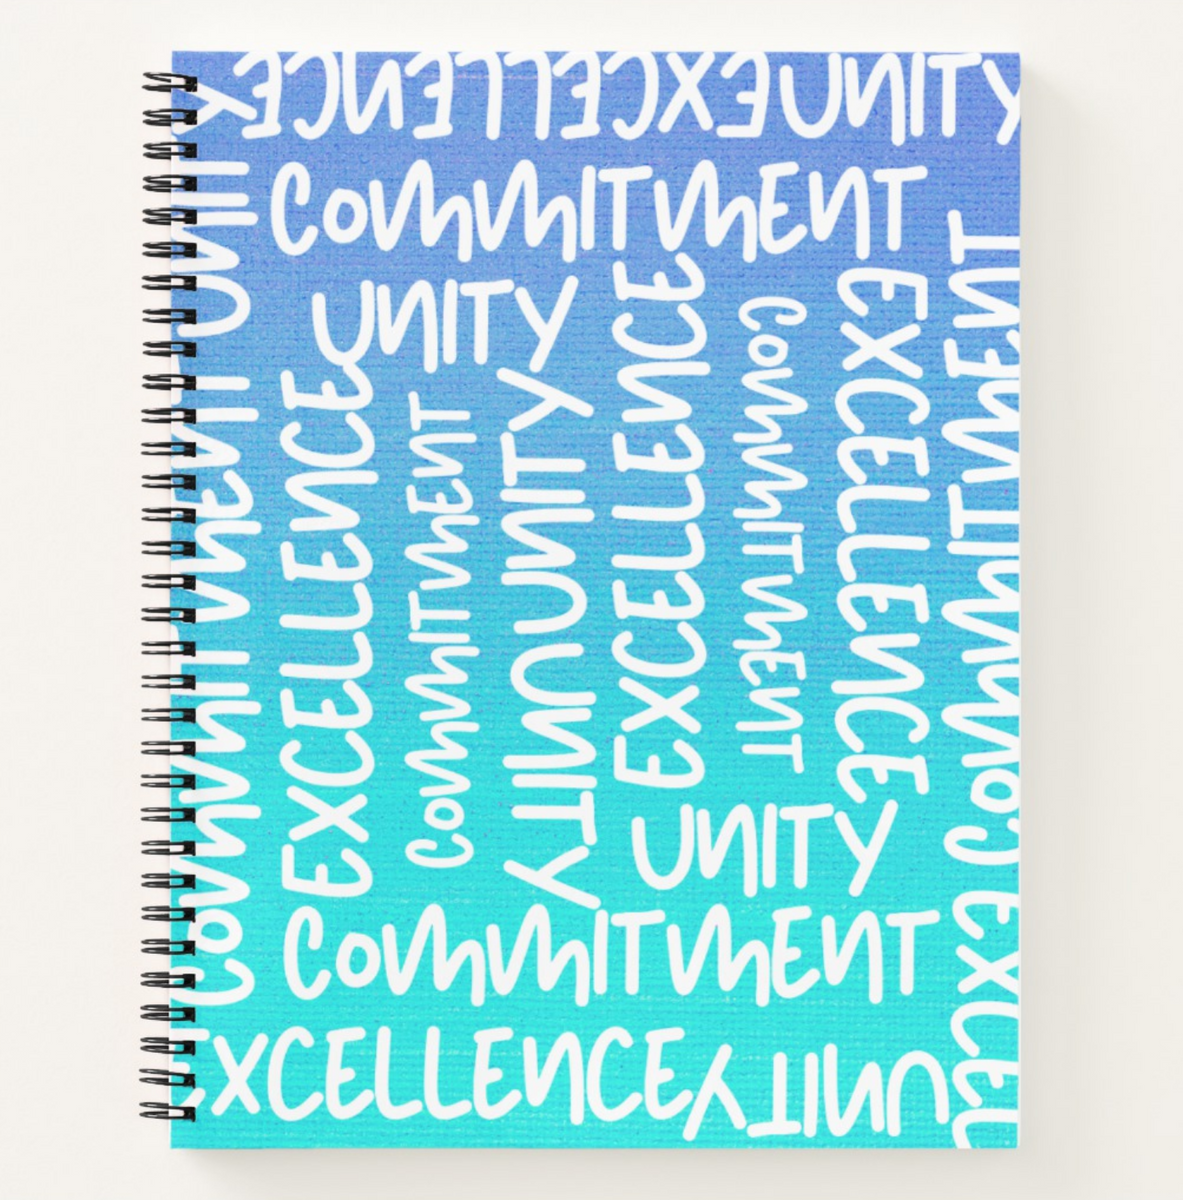 EXCELLENCE UNITY
COMMITMENT UNITY
COMMITMENT
UNITY
EXCELLENCE
COMMITMENT
UNITY
UNITY
EXCELLENCE
COMMITMENT
EXCELLENCE
COMMITMENT
EXCELL
UNITY
COMMITMENT
EXCELLENCE UNITY